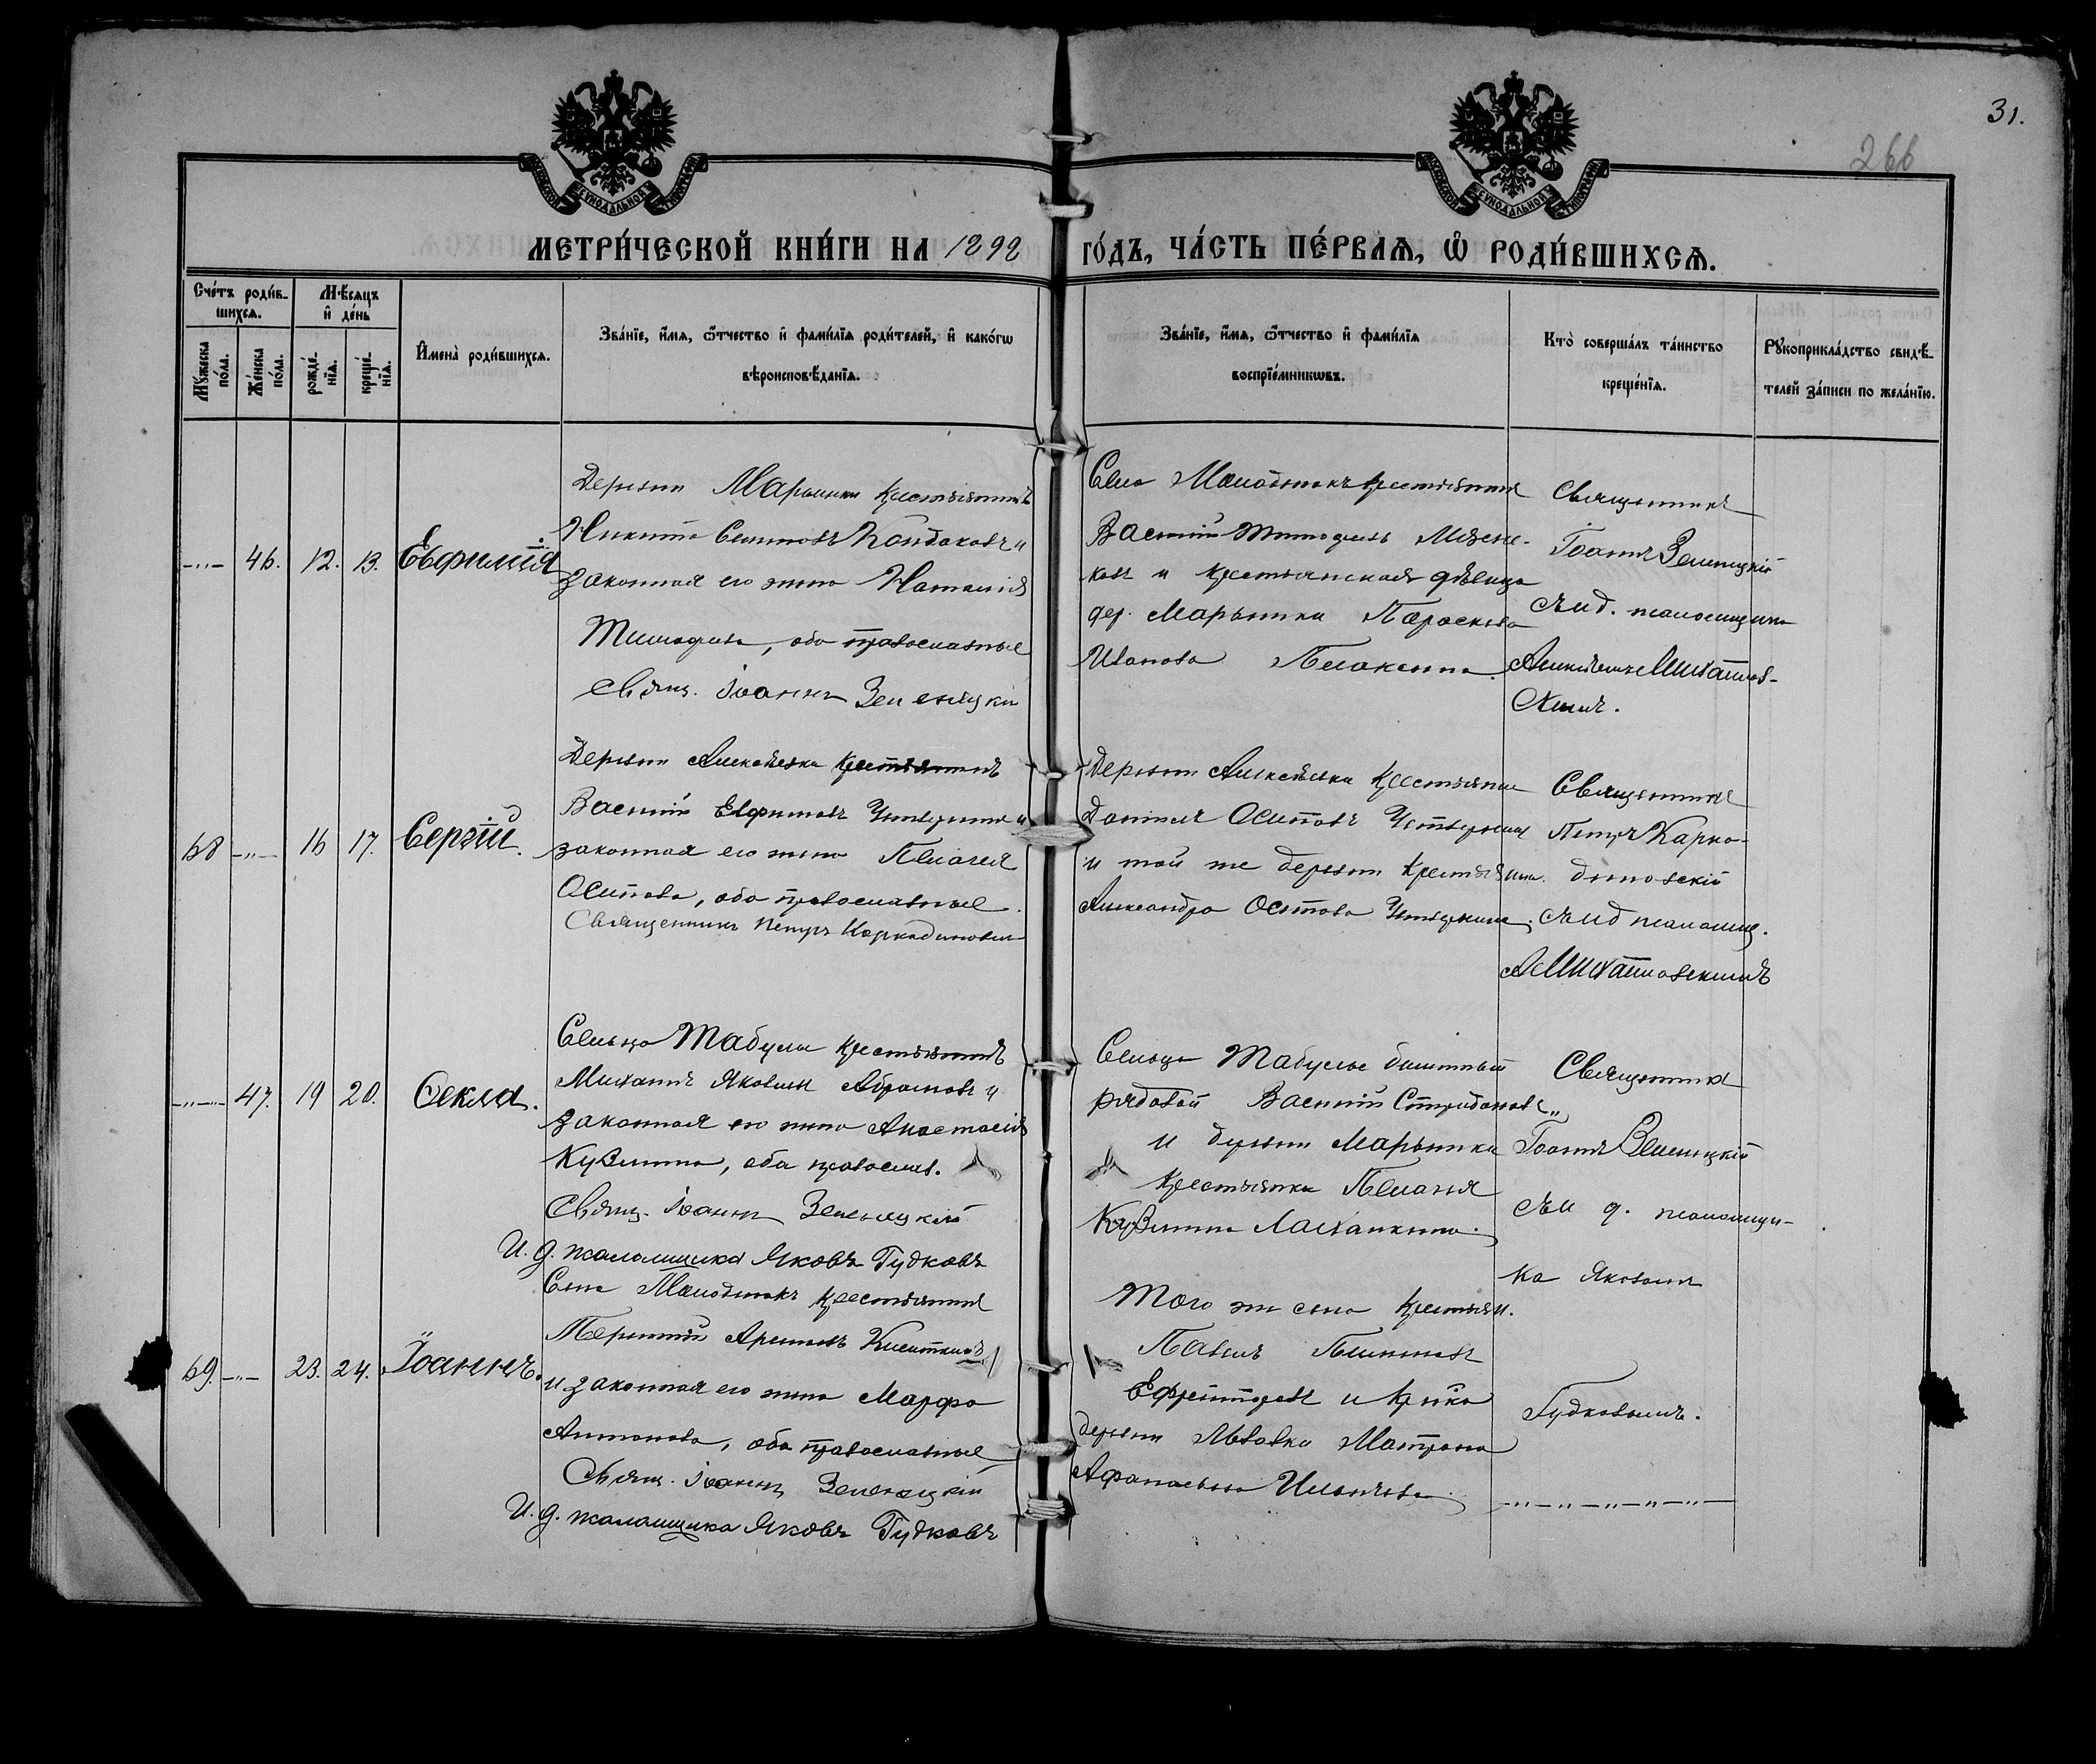 31.
266
МЕТРИ́ЧЕСКОЙ КНИ́ГИ НА 1892 ГО́ДЪ, ЧА́СТЬ ПЕ́РВАѦ, Ѡ҆ РОДИ́ВШИХСѦ.
Сче́тъ роди́в-
шихсѧ.
Мꙋ́жеска по́ла.
Же́нска по́ла.
Мѣ́сѧцъ и҆ де́нь
рожде́нїѧ.
креще́нїѧ.
И҆мена̀ роди́вшихсѧ.
Зва́нїе, и҆́мѧ, ѻ҆́тчество и҆ фами́лїѧ роди́телей, и҆ како́гѡ
вѣроисповѣ́данїѧ.
Зва́нїе, и҆́мѧ, ѻ҆́тчество и҆ фами́лїѧ
воспрїе́мникѡвъ.
Кто̀ соверша́лъ та́инство
креще́нїѧ.
Рꙋкоприкла́дство свидѣ́-
телей за́писи по жела́нїю.
46. 12. 13. Евфимія
Деревни Марьинки крестьянинъ
Никита Кондаковъ и
законная его жена Наталія
Тимофеева, оба православные
Свящ. Іоаннъ Зеленецкій
Села крестьянинъ
Василій Тимофеевъ
ковъ и крестьянская дѣвица
дер. Марьинки Параскева
Иванова
Священникъ
Іоаннъ Зеленецкій
съ и. д. псаломщика
Алексѣемъ Михайлов-
скимъ.
68 16 17. Сергій.
Деревни Алексѣевки крестьянинъ
Василій Евфимовъ и
законная его жена Пелагея
Осипова, оба православные.
Священникъ Петръ Каркадиновскій
Деревни Алексѣевки крестьянинъ
Даніилъ Осиповъ
и той же деревни крестьянка
Александра Осипова
Священникъ
Петръ Карка-
диновскій
съ и д псаломщ.
А Михайловскимъ
47. 19 20. Ѳекла.
Сельца Табулы крестьянинъ
Михаилъ Яковлевъ Абрамовъ и
законная его жена Анастасія
Кузмина, оба православ.
Свящ. Іоаннъ Зеленецкій
И. д. псаломщика Яковъ Гудковъ
Сельца Табулы билетный
рядовой Василій Спиридоновъ
и деревни Марьинки
крестьянка Пелагея
Кузмина
Священникъ
Іоаннъ Зеленецкій
съ и д. псаломщи-
ка Яковомъ
Гудковымъ.
69. 23. 24. Іоаннъ.
Села крестьянинъ
Терентій
и законная его жена Марфа
Антонова, оба православные
Свящ. Іоаннъ Зеленецкій
И. д. псаломщика Яковъ Гудковъ
Того же села крестьян.
Павелъ
и кр-ка
деревни Львовки Матрона
Афанасьева